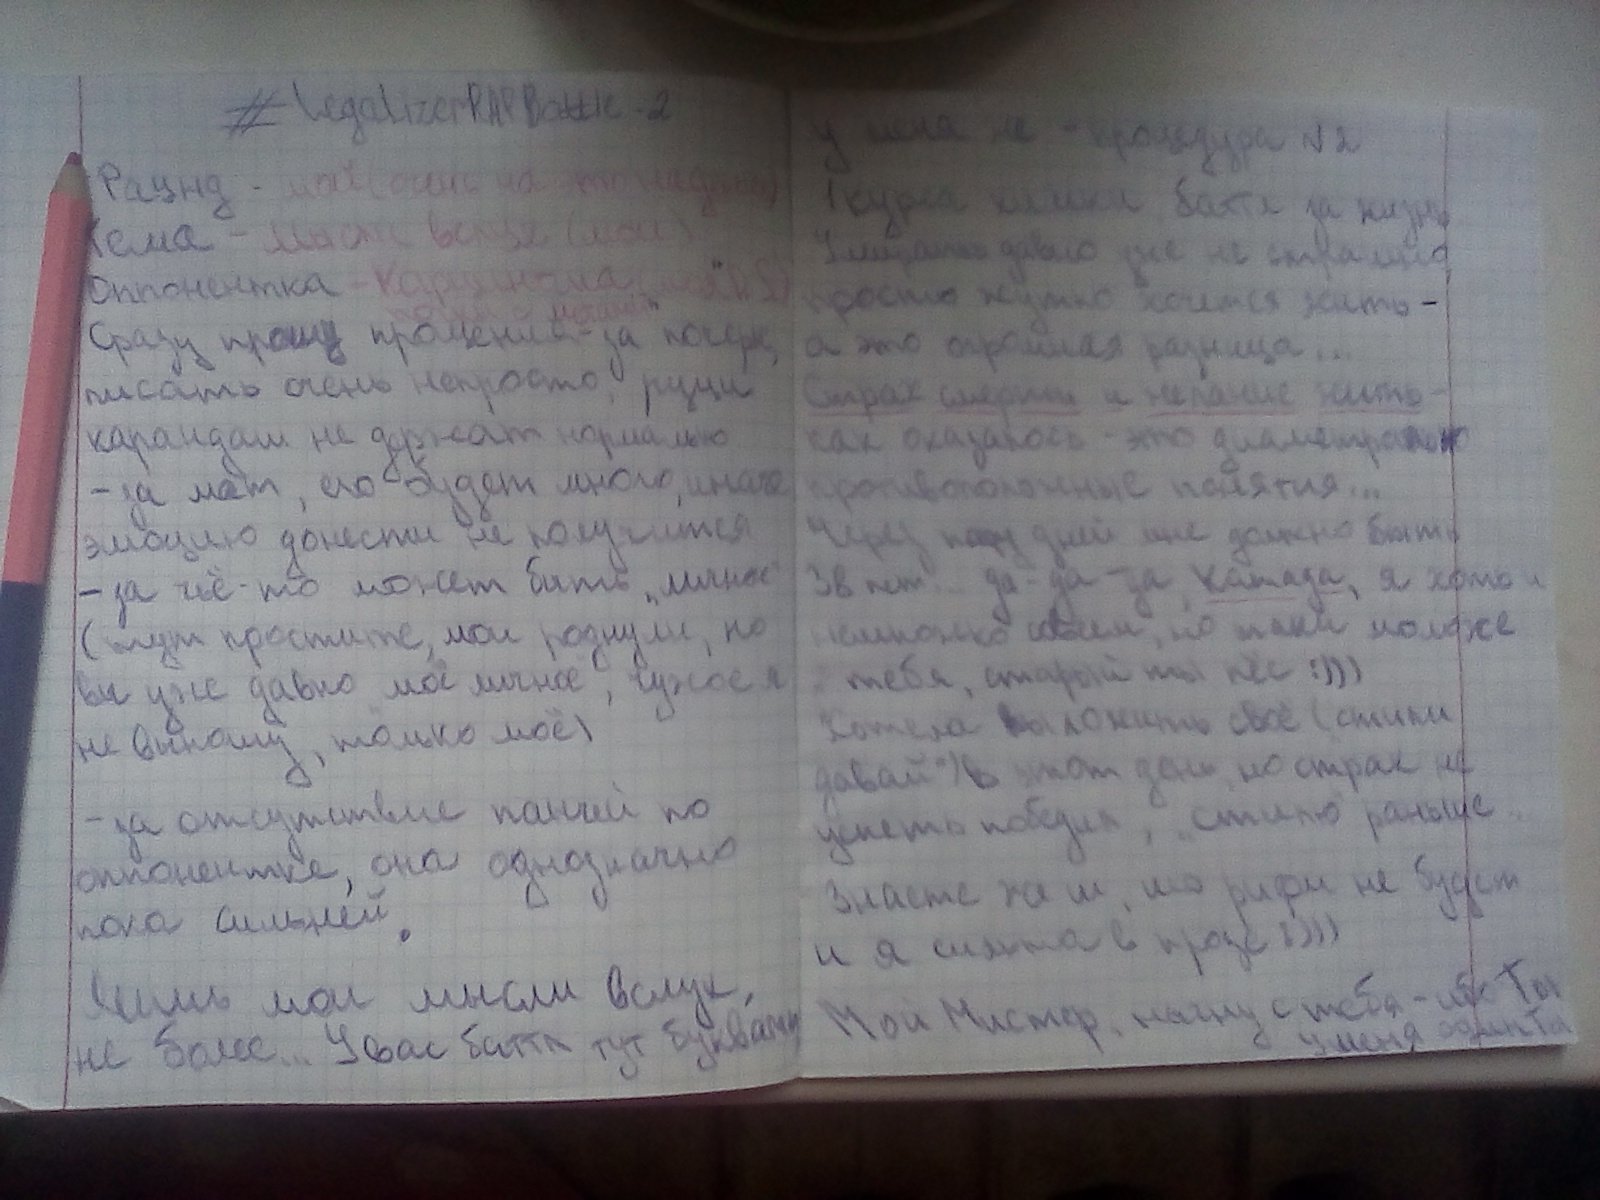 #legalizerRAPBattle-2
Раунд -
Тема - мысли вслух (мои)
Оппонентка - Карцинома
Сразу прошу прощения - за почерк,
писать очень непросто, руки
карандаш не держат нормально
- за мат, его будет много, иначе
эмоцию донести не получится
- за чьё-то может быть "личное"
(тут простите, мои роднули, но
вы уже давно моё личное, чужое я
не выношу, только моё)
- за отсутствие панчей по
оппонентке, она однозначно
пока сильней.
Лишь мои мысли вслух,
не более... У вас баттл тут буквами
у меня же - процедура №2
курса химии, баттл за жизнь
Умирать давно уже не страшно,
просто жутко хочется жить -
а это огромная разница...
Страх смерти и желание жить -
как оказалось - это диаметрально
противоположные понятия...
Через пару дней мне должно быть
38 лет... да-да-да, Катада, я хоть и
совсем, но таки моложе
тебя, старый ты пёс :)))
Хотела выложить своё (стили
давай") в этот день, но страх не
успеть победил, "стилю" раньше..
Знаете же и, что рифм не будет
и я сильна в прозе :)))
Мой Мистер, начну с тебя - ибо Ты
у меня один